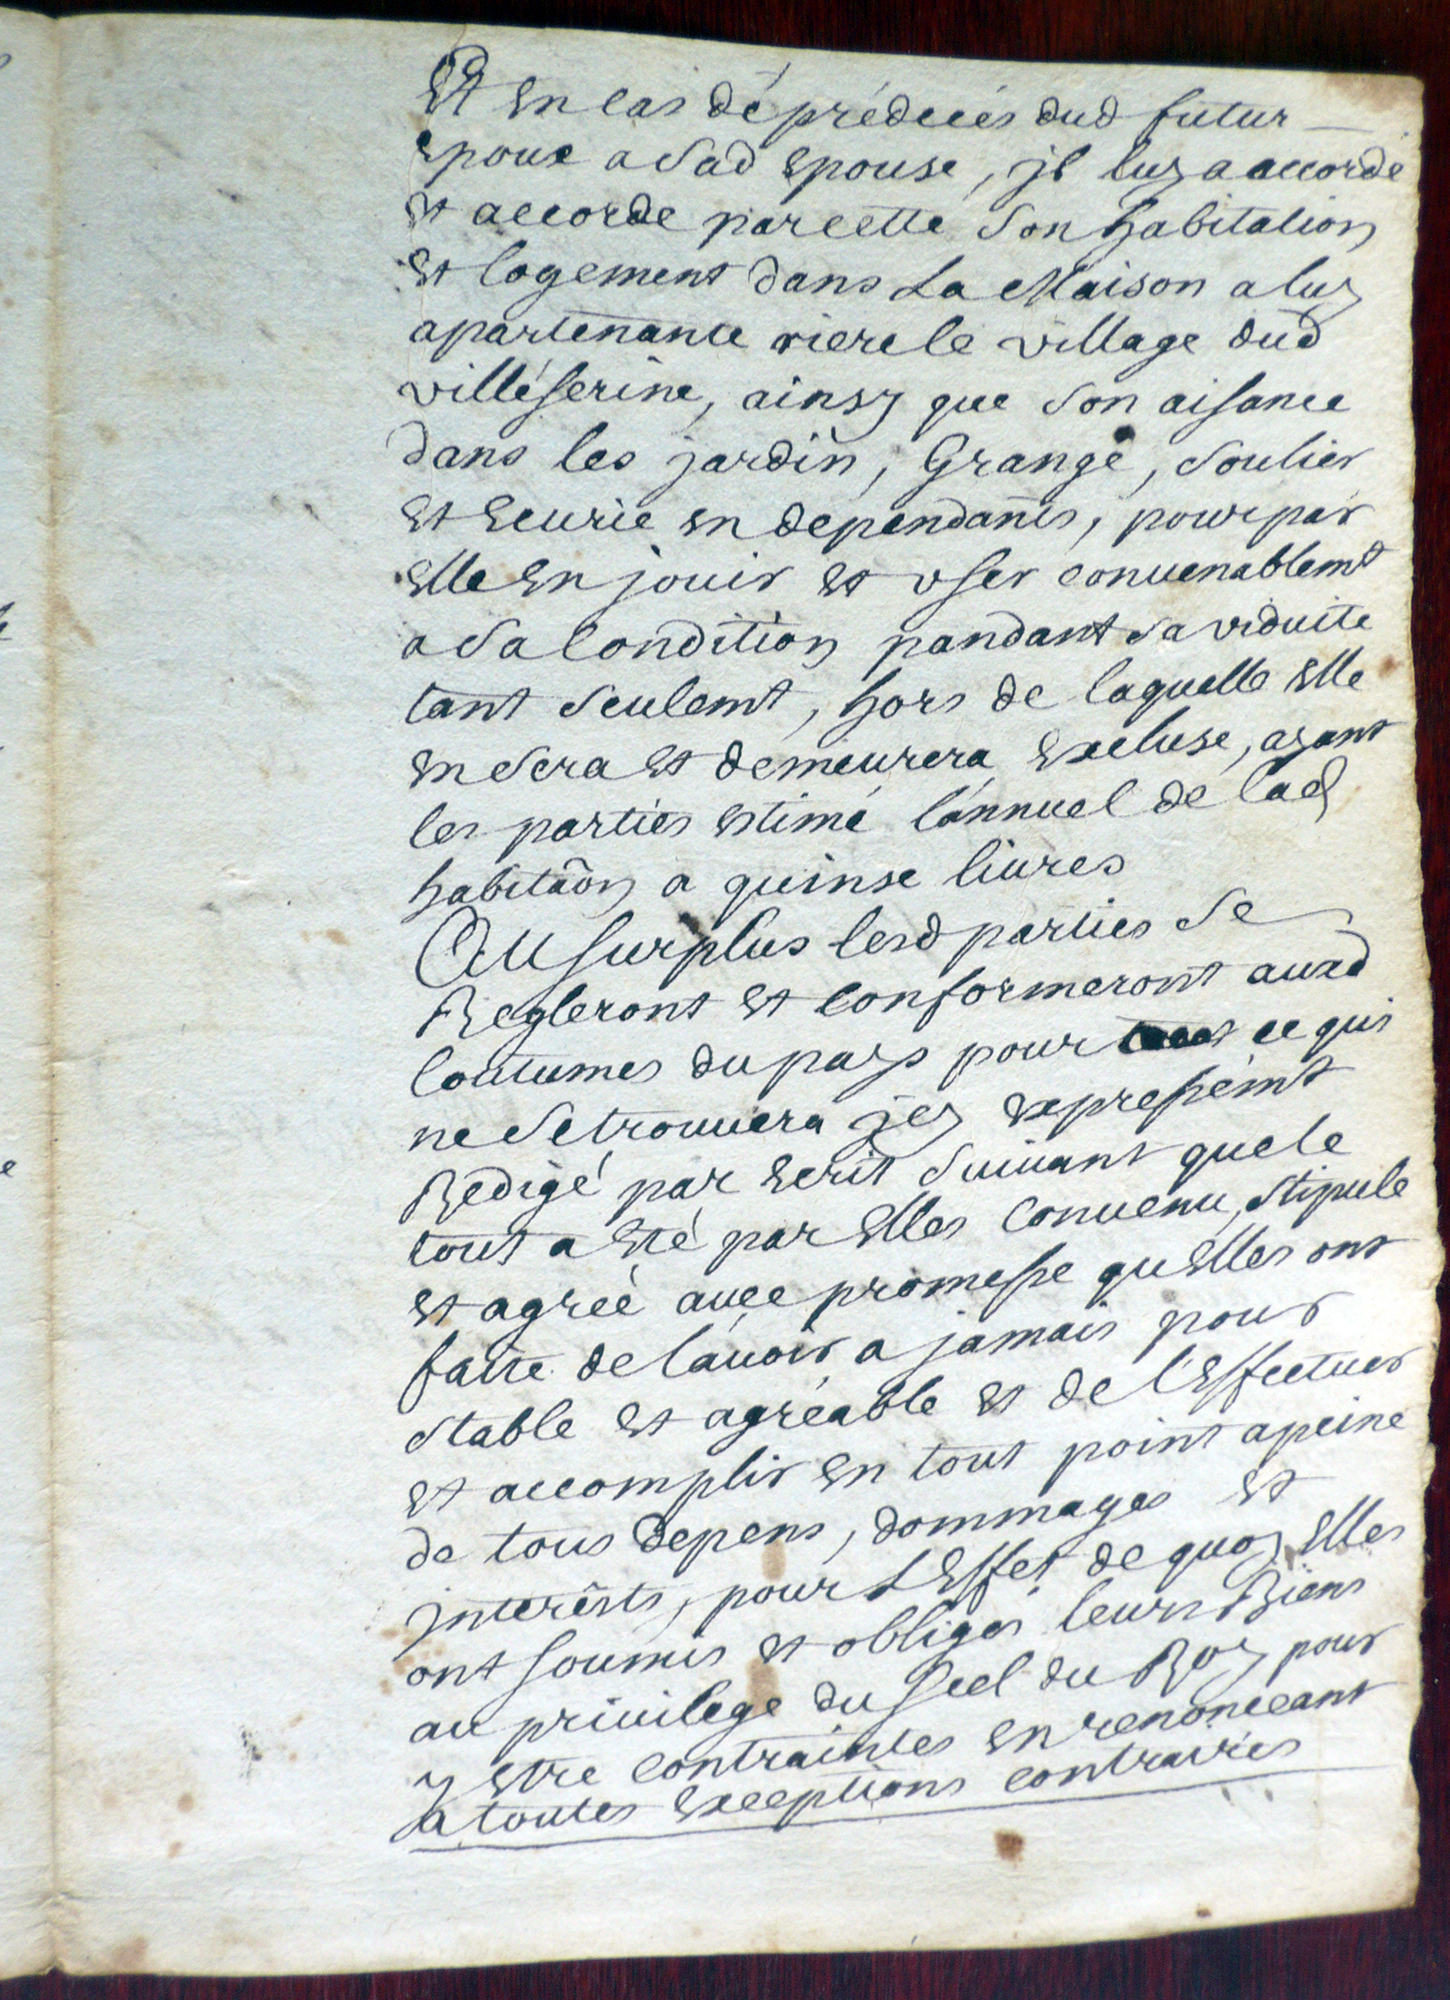 Et en cas dé prédécés dud futur
epoux a sad epouse, jl luy a accorde
et accorde par cette son habitation
et logement dans La Maison a luy
apartenante riere le village dud
villéserine, ainsy que son aisance
dans les jardin, Grange, soulier
et Ecurie en dependants, pour par
elle En jouir et user convenablemt
a sa Condition pandant sa viduite
tant seulemt, hors de laquelle Elle
en sera et demeurera Excluse, ayant
les parties estimé l'annuel de lad
habitãon a quinse livres
Au surplus lesd parties se
Regleront et Conformeront auxd
Coutumes du pays pour tout ce qui
ne se trouvera jcy expressemt
Redigé par Ecrit suivant que le
tout a Eté par Elles Convenu, stipule
et agréé avec promesse quElles ont
faite de l'avoir a jamais pour
stable et agréable et de l'Effectuer
et accomplir en tout point a peine
de tous depens, dommages et
jnterêsts, pour LEffet de quoy Elles
ont soumis et obligés leurs Biens
au privilege du scel du Roy pour
y etre contraintes en renonceant
a toutes Exceptions contraires